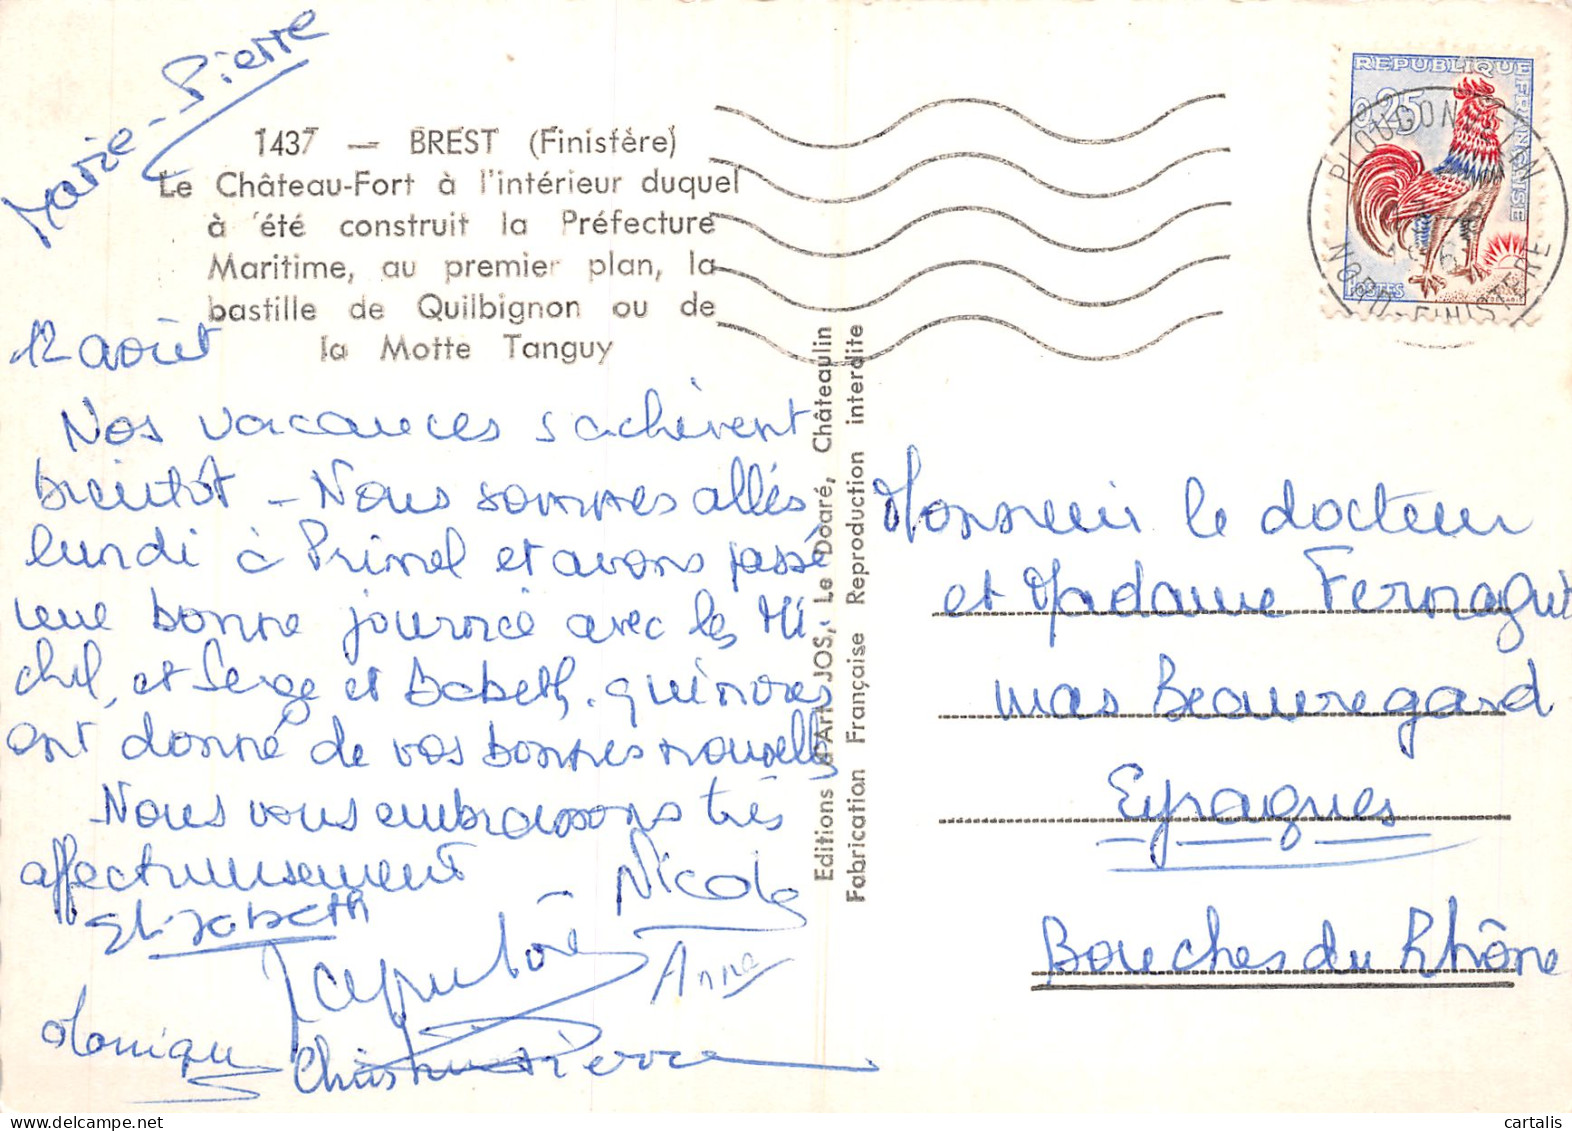 Marie-Pierre
1437 — BREST (Finistère)
Le Château-Fort à l'intérieur duquel
à été construit la Préfecture
Maritime, au premier plan, la
bastille de Quilbignon ou de
la Motte Tanguy
12 août
Nos vacances s'achèvent
bientôt - Nous sommes allés
lundi à Primel et avons passé
une bonne journée avec les Mi
chel, et Serge et Babeth. qui nous
ont donné de vos bonnes nouvelles
Nous vous embrassons très
affectueusement
Elizabeth
Nicole
Anne
Monique
Pierre
Editions d'Art JOS, Le Doaré, Châteaulin
Fabrication Française Reproduction interdite
REPUBLIQUE FRANÇAISE
0,25
POSTES
NORD-FINISTERE
Monsieur le docteur
et Madame Ferragut
mas Beauregard
Eyragues
Bouches du Rhône
cartalis